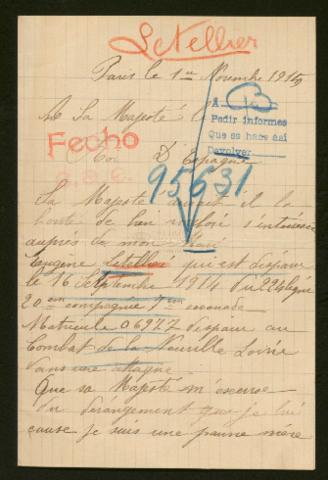 Letellier
Paris le 1er Novembre 1915
A Sa Majesté le
A.
Pedir informes
Que se hace asi
Devolver
Fecho
Roi D'Espagne
95631
Sa Majesté aurait il la
bonté de bien s'interesser
auprès de mon Mari
Eugène Letellier qui est disparu
le 16 Septembre 1914 Du 224 ligne
20em compagnie 7em escouade
Matricule 06927 disparu au
Combat de la Neuville Loivre
dans une attaque
Que sa Majesté m'excuse
Du dérangement que je lui
cause je suis une pauvre mère